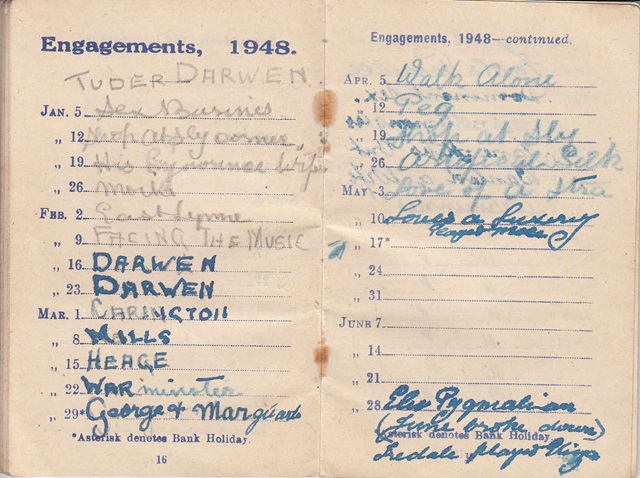 Engagements, 1948.
TUDER DARWEN
JAN. 5 Sex Busines
„ 12 Shop at Sly corner
„ 19 His
„ 26
FEB. 2 East Lynne
„ 9 FACING THE MUSIC
„ 16 DARWEN
„ 23 DARWEN
MAR. 1 CARINGTON
„ 8 MILLS
„ 15 HEAGE
„ 22 WARminster
„ 29* George & Margueate
*Asterisk denotes Bank Holiday
16
Engagements, 1948—continued.
APR. 5 Walk Alone
„ 12 Peg
„ 19 Shop at Sly
„ 26
MAY 3 Love of a
„ 10 Loves a Luxury
„ 17*
„ 24
„ 31
JUNE 7
„ 14
„ 21
„ 28 Pygmalian
(June broke down)
*Asterisk denotes Bank Holiday
played